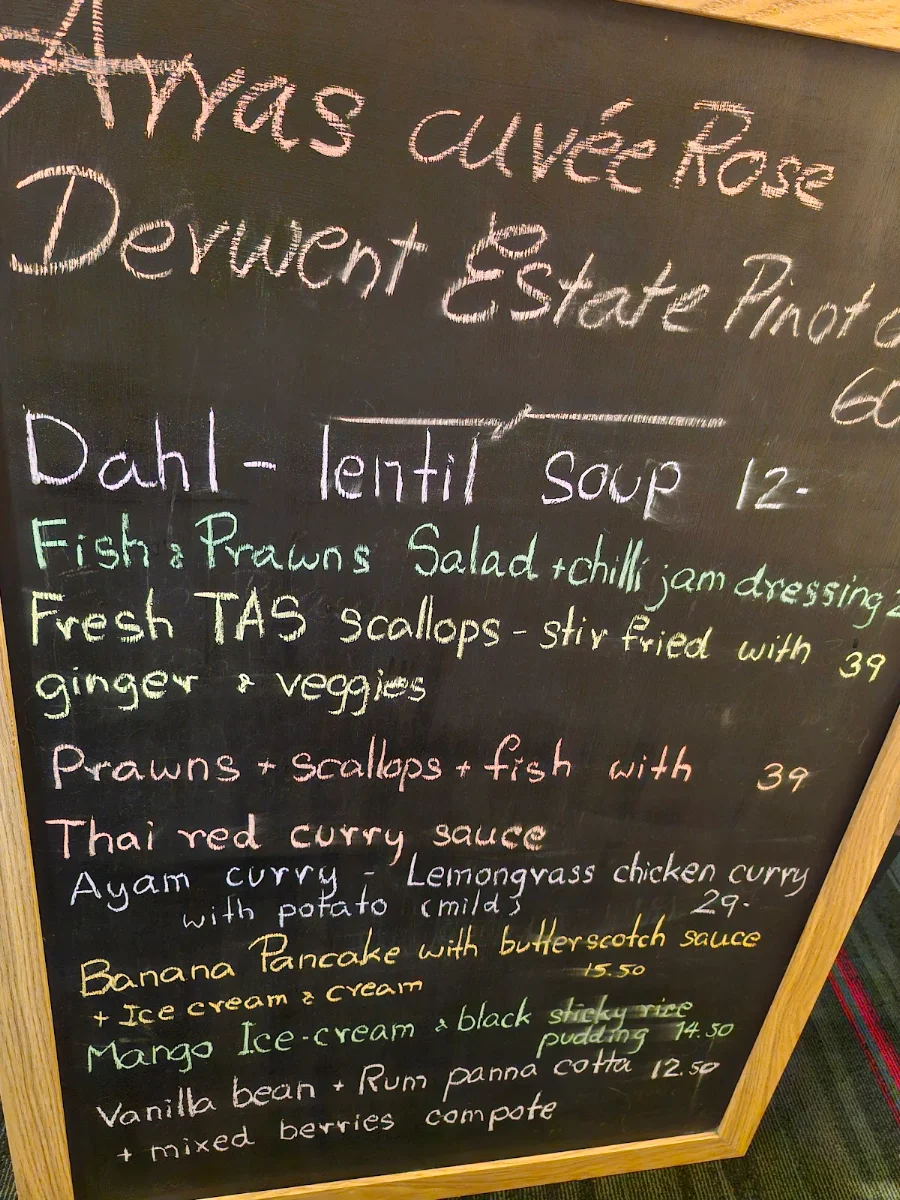 Arras cuvée Rose
Derwent Estate Pinot
60
Dahl - lentil soup 12-
Fish & Prawns Salad + chilli jam dressing
Fresh TAS scallops - stir fried with 39
ginger & veggies
Prawns + scallops + fish with 39
Thai red curry sauce
Ayam curry - Lemongrass chicken curry
with potato (mild) 29-
Banana Pancake with butterscotch sauce
+ Ice cream & cream 15.50
Mango Ice-cream & black sticky rice
pudding 14.50
Vanilla bean + Rum panna cotta 12.50
+ mixed berries compote